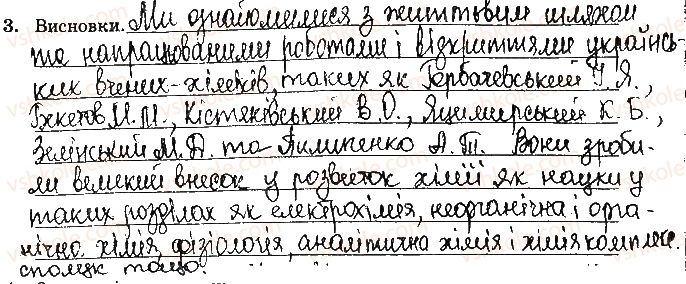 3. Висновки. Ми ознайомилися з життєвим шляхом
та напрацьованими роботами і відкриттями українсь-
ких вчених-хіміків, таких як Горбачевський І. Я.,
Бекетов М. М., Кістяківський В. О., Яцимирський К. Б.,
Зелінський М. Д. та Пилипенко А. Т. Вони зроби-
ли великий внесок у розвиток хімії як науки у
таких розділах як електрохімія, неорганічна і орга-
нічна хімія, фізіологія, аналітична хімія і хімія комплекс.
сполук тощо.